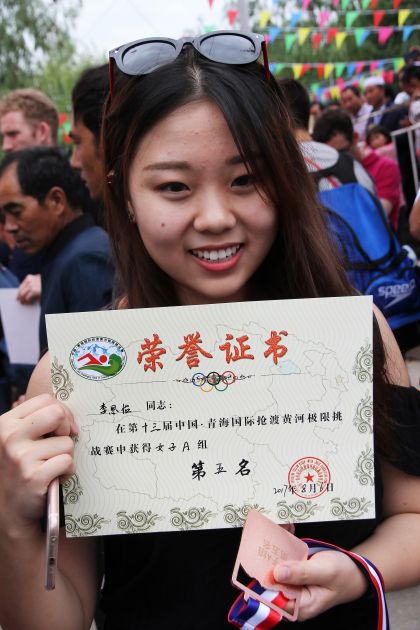 荣誉证书
李思恒 同志:
在第十三届中国·青海国际抢渡黄河极限挑
战赛中获得女子A组
第五名
2017年8月6日
speedo